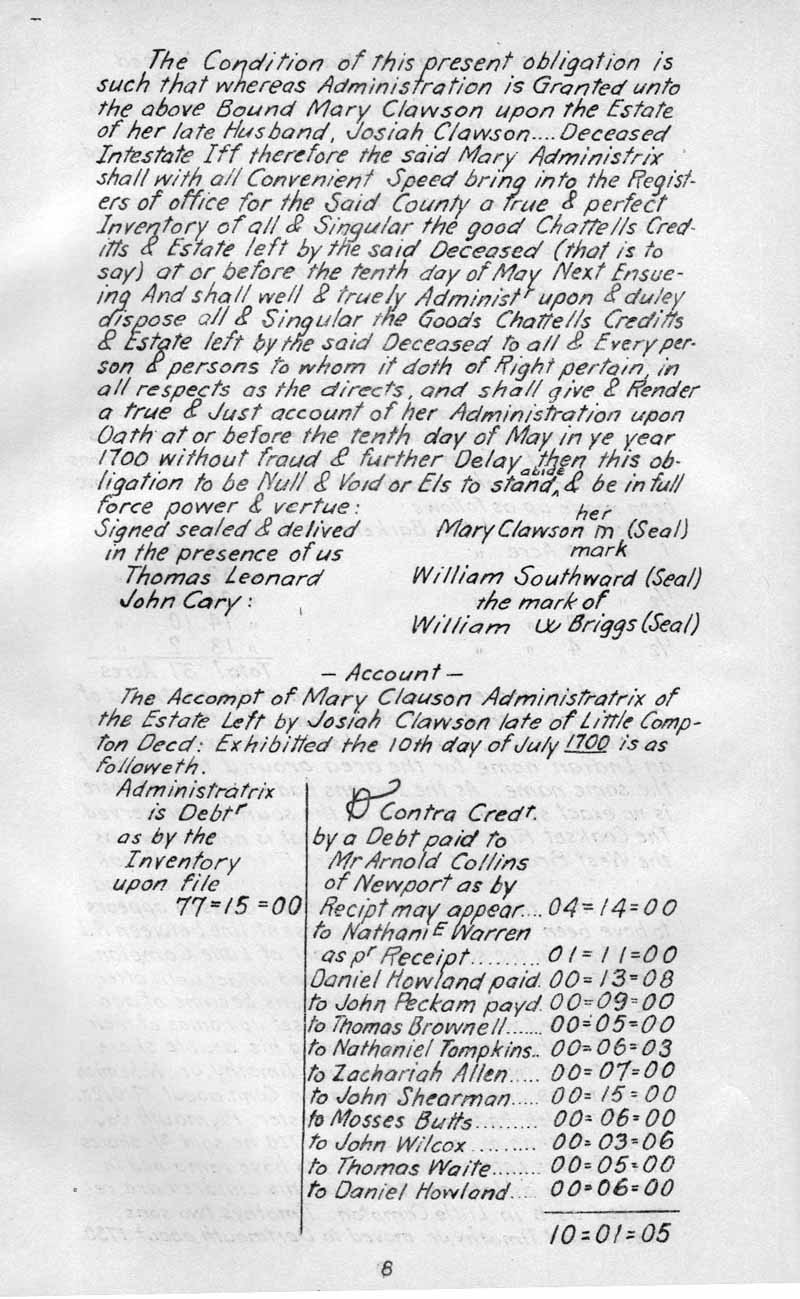 The Condition of this present obligation is
such that whereas Administration is Granted unto
the above Bound Mary Clawson upon the Estate
of her late Husband, Josiah Clawson.... Deceased
Intestate Iff therefore the said Mary Administrix
shall with all Convenient Speed bring into the Regist-
ers of office for the Said County a true & perfect
Inventory of all & Singular the good Chattells Cred-
itts & Estate left by the said Deceased (that is to
say) at or before the tenth day of May Next Ensue-
ing And shall well & truely Administr upon & duley
dispose all & Singular the Goods Chattells Creditts
& Estate left by the said Deceased to all & Every per-
son & persons to whom it doth of Right pertain, in
all respects as the directs, and shall give & Render
a true & Just account of her Administration upon
Oath at or before the tenth day of May in ye year
1700 without fraud & further Delay then this ob-
ligation to be Null & Void or Els to stand, abide & be in full
force power & vertue:
her
Signed sealed & delived Mary Clawson m (Seal)
in the presence of us mark
Thomas Leonard William Southward (Seal)
John Cary: the mark of
William W Briggs (Seal)
— Account —
The Accompt of Mary Clauson Administratrix of
the Estate Left by Josiah Clawson late of Little Comp-
ton Decd: Exhibitted the 10th day of July 1700 is as
followeth.
Administratrix
is Debtr
as by the
Inventory
upon file
77=15=00
Contra Credr.
by a Debt paid to
Mr Arnold Collins
of Newport as by
Recipt may appear.... 04=14=00
to NathaniE Warren
as pr Receipt......... 01=11=00
Daniel Howland paid. 00=13=08
to John Peckam payd. 00=09=00
to Thomas Brownell...... 00=05=00
to Nathaniel Tompkins.. 00=06=03
to Zachariah Allen..... 00=07=00
to John Shearman..... 00=15=00
to Mosses Butts......... 00=06=00
to John Wilcox.......... 00=03=06
to Thomas Waite....... 00=05=00
to Daniel Howland... 00=06=00
10=01=05
8